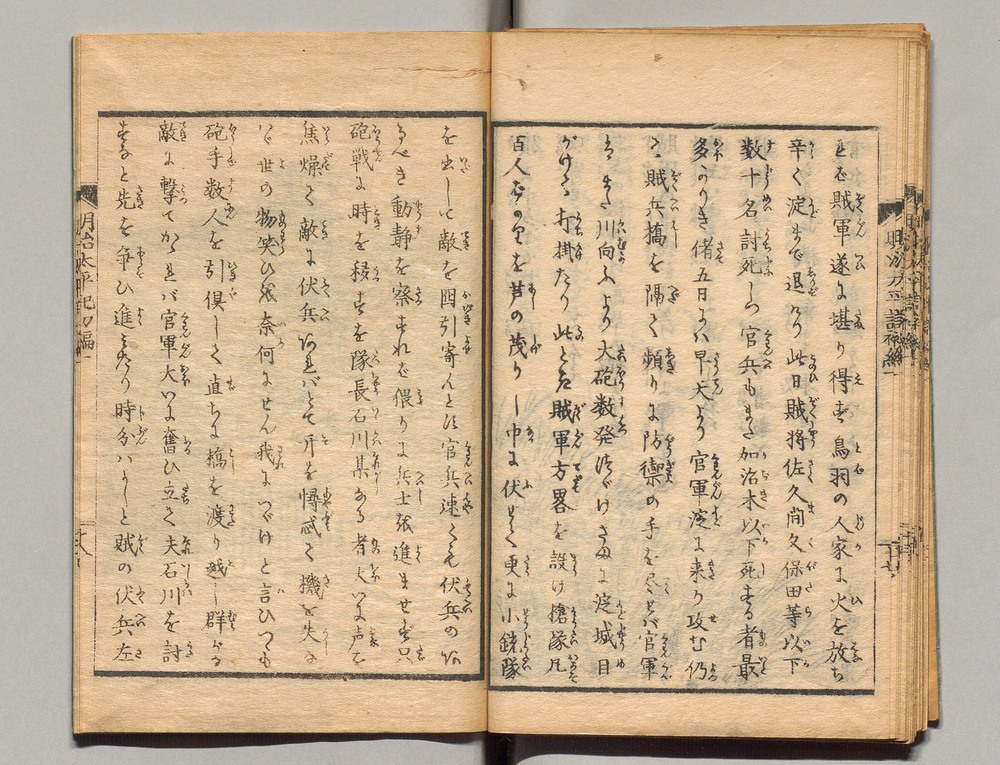 é賊軍遂に堪り得ず鳥羽の人家に火を放ち
辛く淀まで退けり此日賊将佐久間久保田等以下
数十名討死しつ官兵もまた加治木以下死する者最
多かりき偖五日には早天より官軍淀に来り攻む仍
て賊兵橋を隔て頻りに防禦の手を尽せば官軍
はまた川向ふより大砲数発つゞけさまに淀城目
がけて打掛たり此とき賊軍方畧を設け槍隊凡
百人ばかりを芦の茂りし中に伏せて更に小銃隊
を出して敵を誘引寄んとす官兵速くも伏兵の
るべき動静を察すれど猥りに兵士を進ませず只
砲戦に時を移すを隊長石川某なる者大いに声を
焦燥て敵に伏兵あればとて斤を憚惑て機を失へ
ば世の物笑ひを奈何にせん我につゞけと言ひつゝも
砲手数人を引倶して直ちに橋を渡り越し群がる
敵に撃てかゝれバ官軍大いに奮ひ立て夫石川を討
すなと先を争ひ進みたり時分ハよしと賊の伏兵左
明治太平記初編一